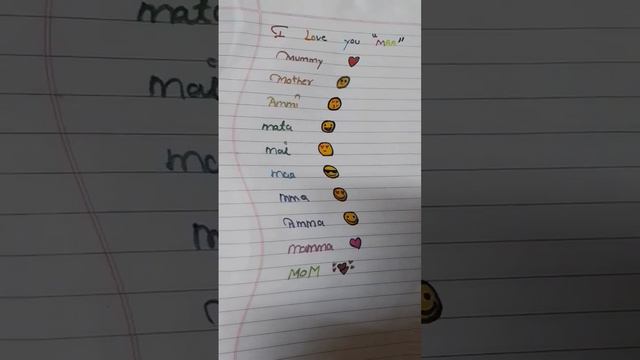 I Love you "maa"
Mummy
Mother
Ammi
mata
mai
maa
mma
Amma
mamma
MOM